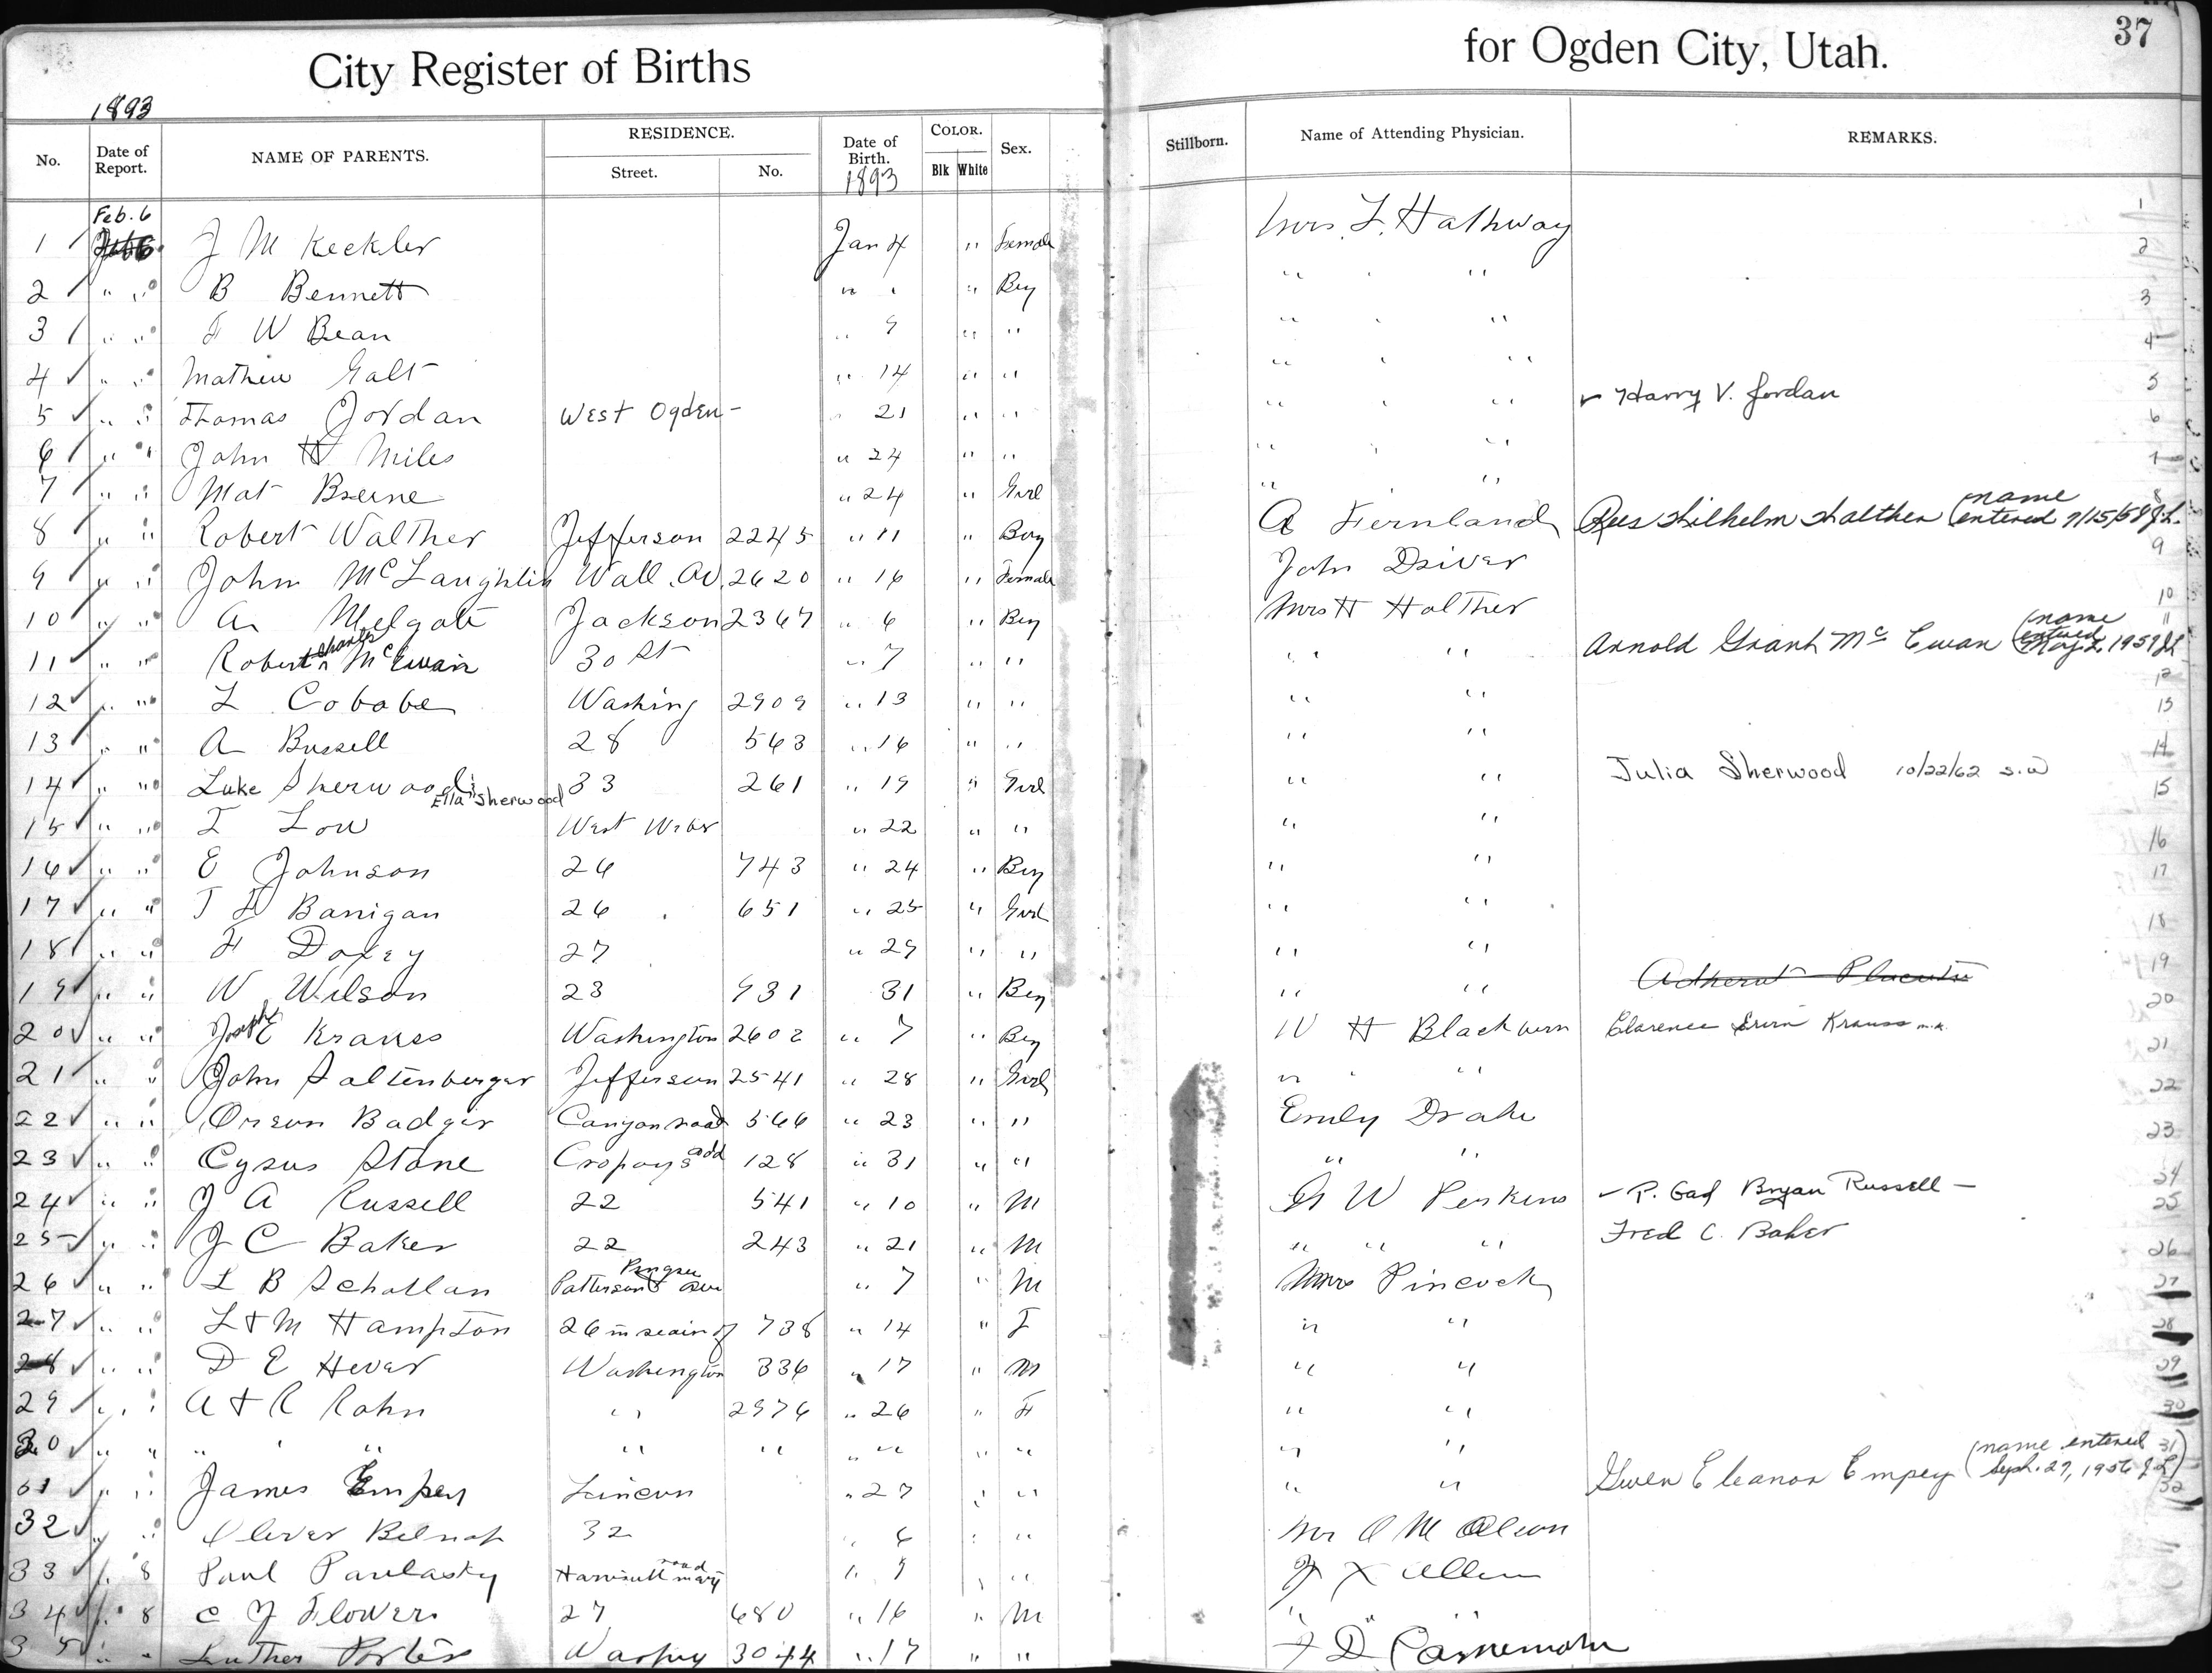 City Register of Births for Ogden City, Utah. 37
1893
No. Date of Report. NAME OF PARENTS. RESIDENCE. Street. No. Date of Birth. 1893 COLOR. Blk White Sex. Stillborn. Name of Attending Physician. REMARKS.
Feb. 6
1 J M Keckler Jan 4 " Female Mrs. F. Hathway 1
2 " " B Bennett " " " Boy " " 2
3 " " F W Bean " 9 " " " " " 3
4 " " Mathew Galt " 14 " " " " " 4
5 " " Thomas Jordan West Ogden - " 21 " " " " " Harry V. Jordan 5
6 " " John H Miles " 24 " " " " " 6
7 " " Mat Beerne " 24 " Girl " " 7
8 " " Robert Walther Jefferson 2245 " 11 " Boy A Fernland Wilhelm Walther (name entered 9/15/58 J.L. 8
9 " " John McLaughlin Wall Av. 2620 " 16 " Female John Driver 9
10 " " A Melgate Jackson 2367 " 6 " Boy Mrs H Holther 10
11 " " Robert Charles McEwan 30 St " 7 " " " " Arnold Grant McEwan (name entered May 2, 1959 JL 11
12 " " L Cobabe Washing 2909 " 13 " " " " 12
13 " " A Bussell 28 563 " 16 " " " " 13
14 " " Luke Sherwood & Ella Sherwood 33 261 " 19 " Girl " " Julia Sherwood 10/22/62 S.W 14
15 " " I Low West Weber " 22 " " " " 15
16 " " E Johnson 26 743 " 24 " Boy " " 16
17 " " J F Banigan 26 651 " 25 " Girl " " 17
18 " " F Doxey 27 " 29 " " " " 18
19 " " W Wilson 23 931 31 " Boy " " Adherent Placenta 19
20 " " Joseph E Krauss Washington 2602 " 7 " Boy W H Blackburn Clarence Ervin Krauss m.k. 20
21 " " John Saltenberger Jefferson 2541 " 28 " Girl " " 21
22 " " Orson Badger Canyon road 566 " 23 " " Emily Drake 22
23 " " Cyrus Stone Cropsys add 128 " 31 " " " " 23
24 " " J A Russell 22 541 " 10 " M G W Perkins P. Gad Bryan Russell - 24
25 " " J C Baker 22 243 " 21 " M " " " Fred C. Baker 25
26 " " L B Schollan Patterson & Pingree ave " 7 " M Mrs Pincock 26
27 " " L & M Hampton 26 in rear of 738 " 14 " F " " 27
28 " " D E Hever Washington 336 " 17 " M " " 28
29 " " A & R Rahn " " 2976 " 26 " F " " 29
30 " " " " " " " " " " " " " " " " 30
31 " " James Empey Lincoln " 27 " " " " Gwen Eleanor Empey (name entered Sept. 27, 1956 J.L) 31
32 " " Oliver Belnap 32 " 6 " " Mrs O M Olson 32
33 " 8 Paul Paulasky " 9 " " J X Allen
34 " 8 C J Flowers 27 680 " 16 " M " " "
35 " " Luther Porter 3044 " 17 " "